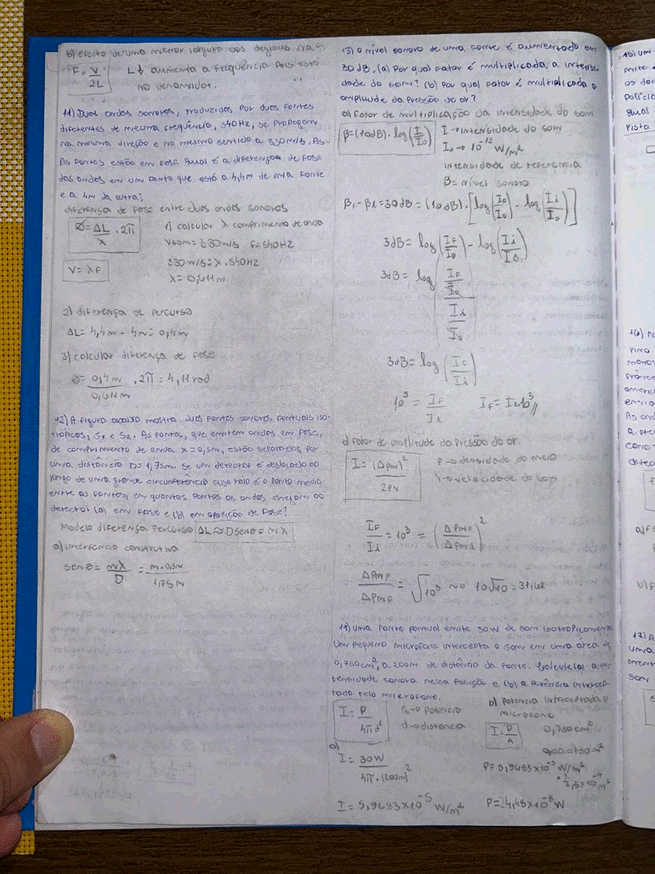 b) efeito de uma menor largura aos
F = V/2L L↓ aumenta a frequência pois está
no denominador.
11) Duas ondas sonoras, produzidas por duas fontes
diferentes de mesma frequência, 540Hz, se propagam
na mesma direção e no mesmo sentido a 330m/s. As
fontes estão em fase. Qual é a diferença de fase
das ondas em um ponto que está a 4,4m de uma fonte
e a 4m da outra?
diferença de fase entre duas ondas sonoras
Ø = ΔL/λ . 2π
1) calcular λ comprimento de onda
Vsom = 330m/s F = 540Hz
V = λF
330m/s = λ . 540Hz
λ = 0,611m
2) diferença de percurso
ΔL = 4,4m - 4m = 0,4m
3) calcular diferença de fase
Ø = 0,4m/0,611m . 2π = 4,11rad
12) A figura abaixo mostra duas fontes sonoras pontuais iso-
trópicas, S1 e S2. As fontes, que emitem ondas em fase,
de comprimento de onda λ = 0,5m, estão separadas por
uma distância D = 1,75m. Se um detector é deslocado ao
longo de uma grande circunferência cujo raio é o ponto médio
entre as fontes, em quantos pontos as ondas chegam ao
detector (a) em fase e (b) em oposição de fase?
Modelo diferença percurso ΔL ≈ D senθ = mλ
a) interferência construtiva
senθ = mλ/D = m.0,5m/1,75m
13) O nível sonoro de uma fonte é aumentado em
30dB, (a) Por qual fator é multiplicada a intensi-
dade do som? (b) Por qual fator é multiplicada a
amplitude da pressão do ar?
a) Fator de multiplicação da intensidade do som
β = (10dB) . log(I/I0) I → intensidade do som
I0 → 10^-12 W/m²
intensidade de referência
β = nível sonoro
βf - βi = 30dB = (10dB) . [log(If/I0) - log(Ii/I0)]
3dB = log(If/I0) - log(Ii/I0)
3dB = log((If/I0)/(Ii/I0))
3dB = log(If/Ii)
10³ = If/Ii If = Ii.10³//
Fator de amplitude da pressão do ar.
I = (ΔPm)²/2ρv
ρ → densidade do meio
v → velocidade do som
If/Ii = 10³ = (ΔPmf/ΔPmi)²
= √10³ ~> 10√10 = 31,62
14) Uma fonte pontual emite 30W de som isotropicamente.
Um pequeno microfone intercepta o som em uma área de
0,750cm², a 200m de distância da fonte. Calcule (a) a in-
tensidade sonora nessa posição e (b) a potência intercep-
tada pelo microfone.
I = P/4πd²
Ps → potência
d → distância
b) Potência interceptada
microfone
I = P/A
0,750cm²
a)
I = 30W/4π.(200m)²
I = 5,9683x10^-5 W/m²
P = 5,9683x10^-5 W/m²
P = 4,48x10^-9 W